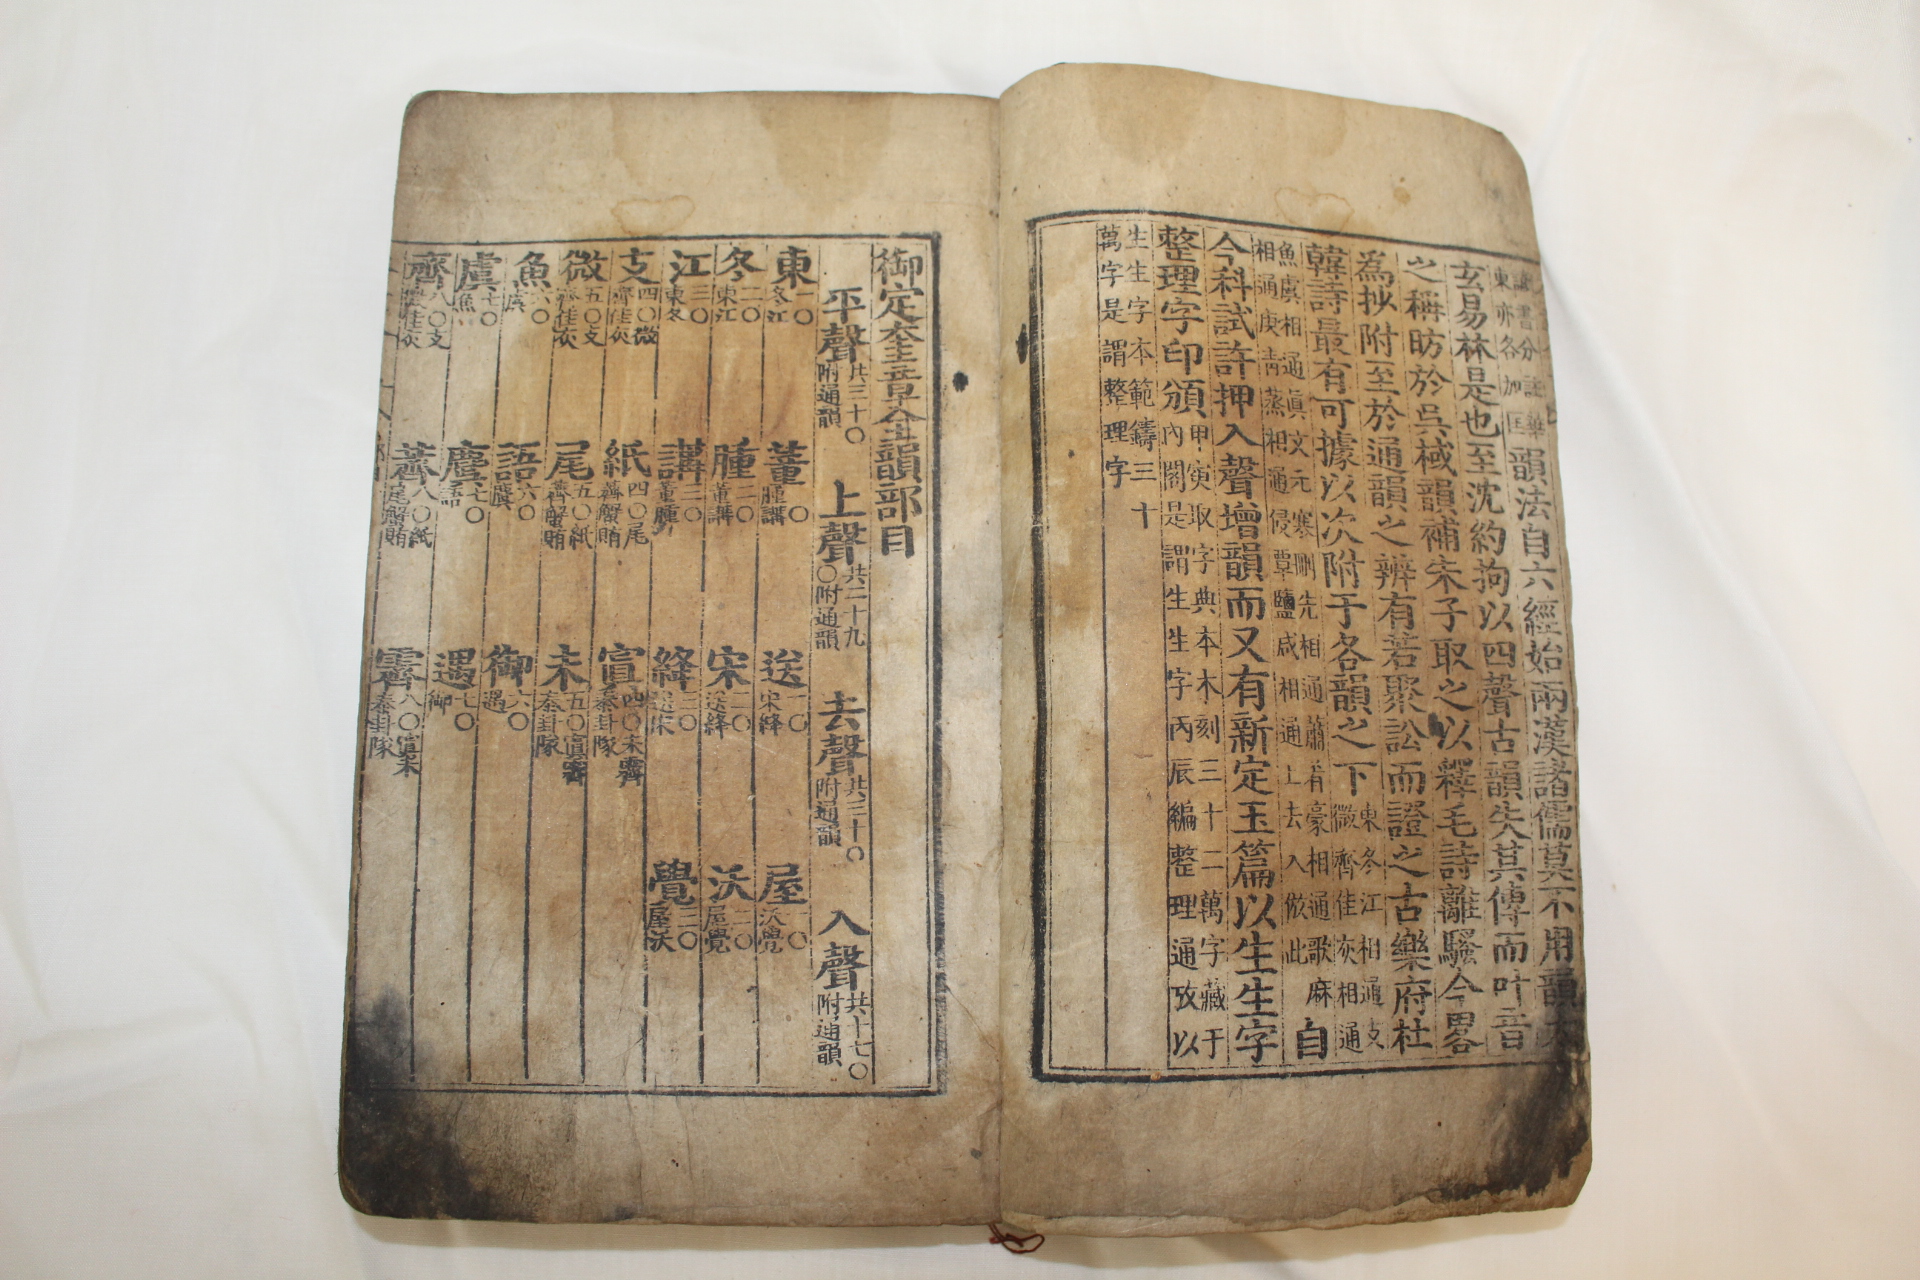 韻法自六經始兩漢諸儒莫不用韻太
玄易林是也至沈約拘以四聲古韻失其傳而叶音
之稱昉於吳棫韻補朱子取之以釋毛詩離騷今畧
爲抄附至於通韻之辨有若聚訟而證之古樂府杜
韓詩最有可據以次附于各韻之下東冬江相通支
微齊佳灰相通
魚虞相通眞文元寒刪先相通蕭肴豪相通歌麻
相通庚靑蒸相通侵覃鹽咸相通上去入倣此自
今科試許押入聲增韻而又有新定玉篇以生生字
整理字印頒甲寅取字典本木刻三十二萬字藏于
內閣是謂生生字丙辰編整理通攷以
生生字本範鑄三十
萬字是謂整理字
御定奎章全韻部目
平聲共三十〇附通韻 上聲共二十九〇附通韻 去聲共三十〇附通韻 入聲共十七〇附通韻
東一〇冬江 董一〇腫講 送一〇宋絳 屋一〇沃覺
冬二〇東江 腫二〇董講 宋二〇送絳 沃二〇屋覺
江三〇東冬 講三〇董腫 絳三〇送宋 覺三〇屋沃
支四〇微齊佳灰 紙四〇尾薺蟹賄 寘四〇未霽泰卦隊
微五〇支齊佳灰 尾五〇紙薺蟹賄 未五〇寘霽泰卦隊
魚六〇虞 語六〇麌 御六〇遇
虞七〇魚 麌七〇語 遇七〇御
齊八〇支微佳灰 薺八〇紙尾蟹賄 霽八〇寘未泰卦隊